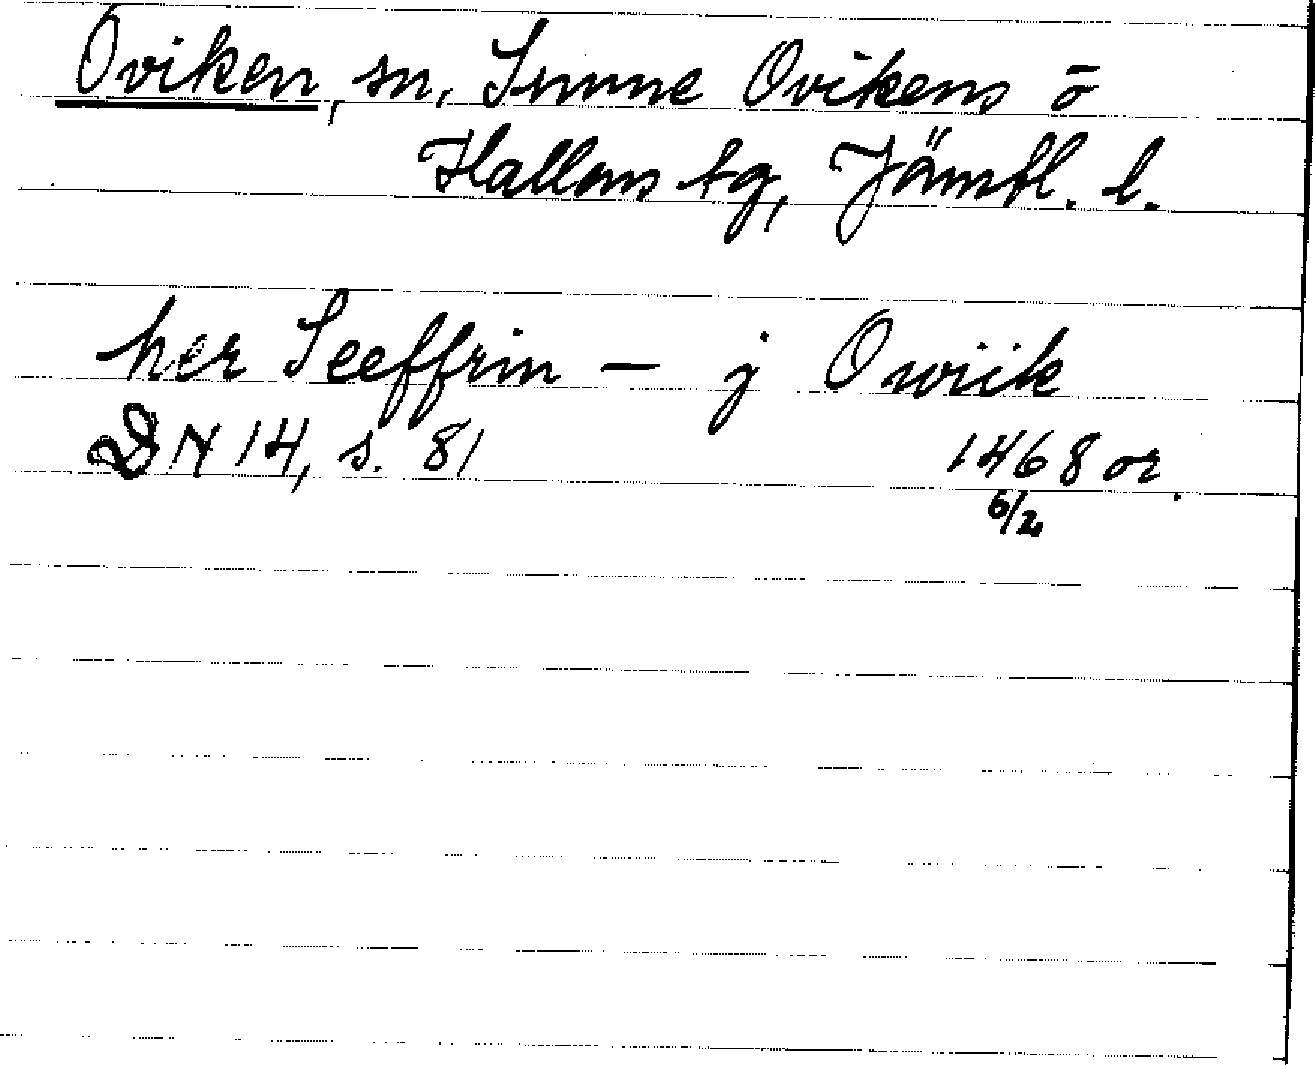 Oviken, sn, Sunne Ovikens o
Hallens tg, Jämtl. l.
her Seeffrin — j Owiik
DN 14, s. 81 1468 or.
6/2